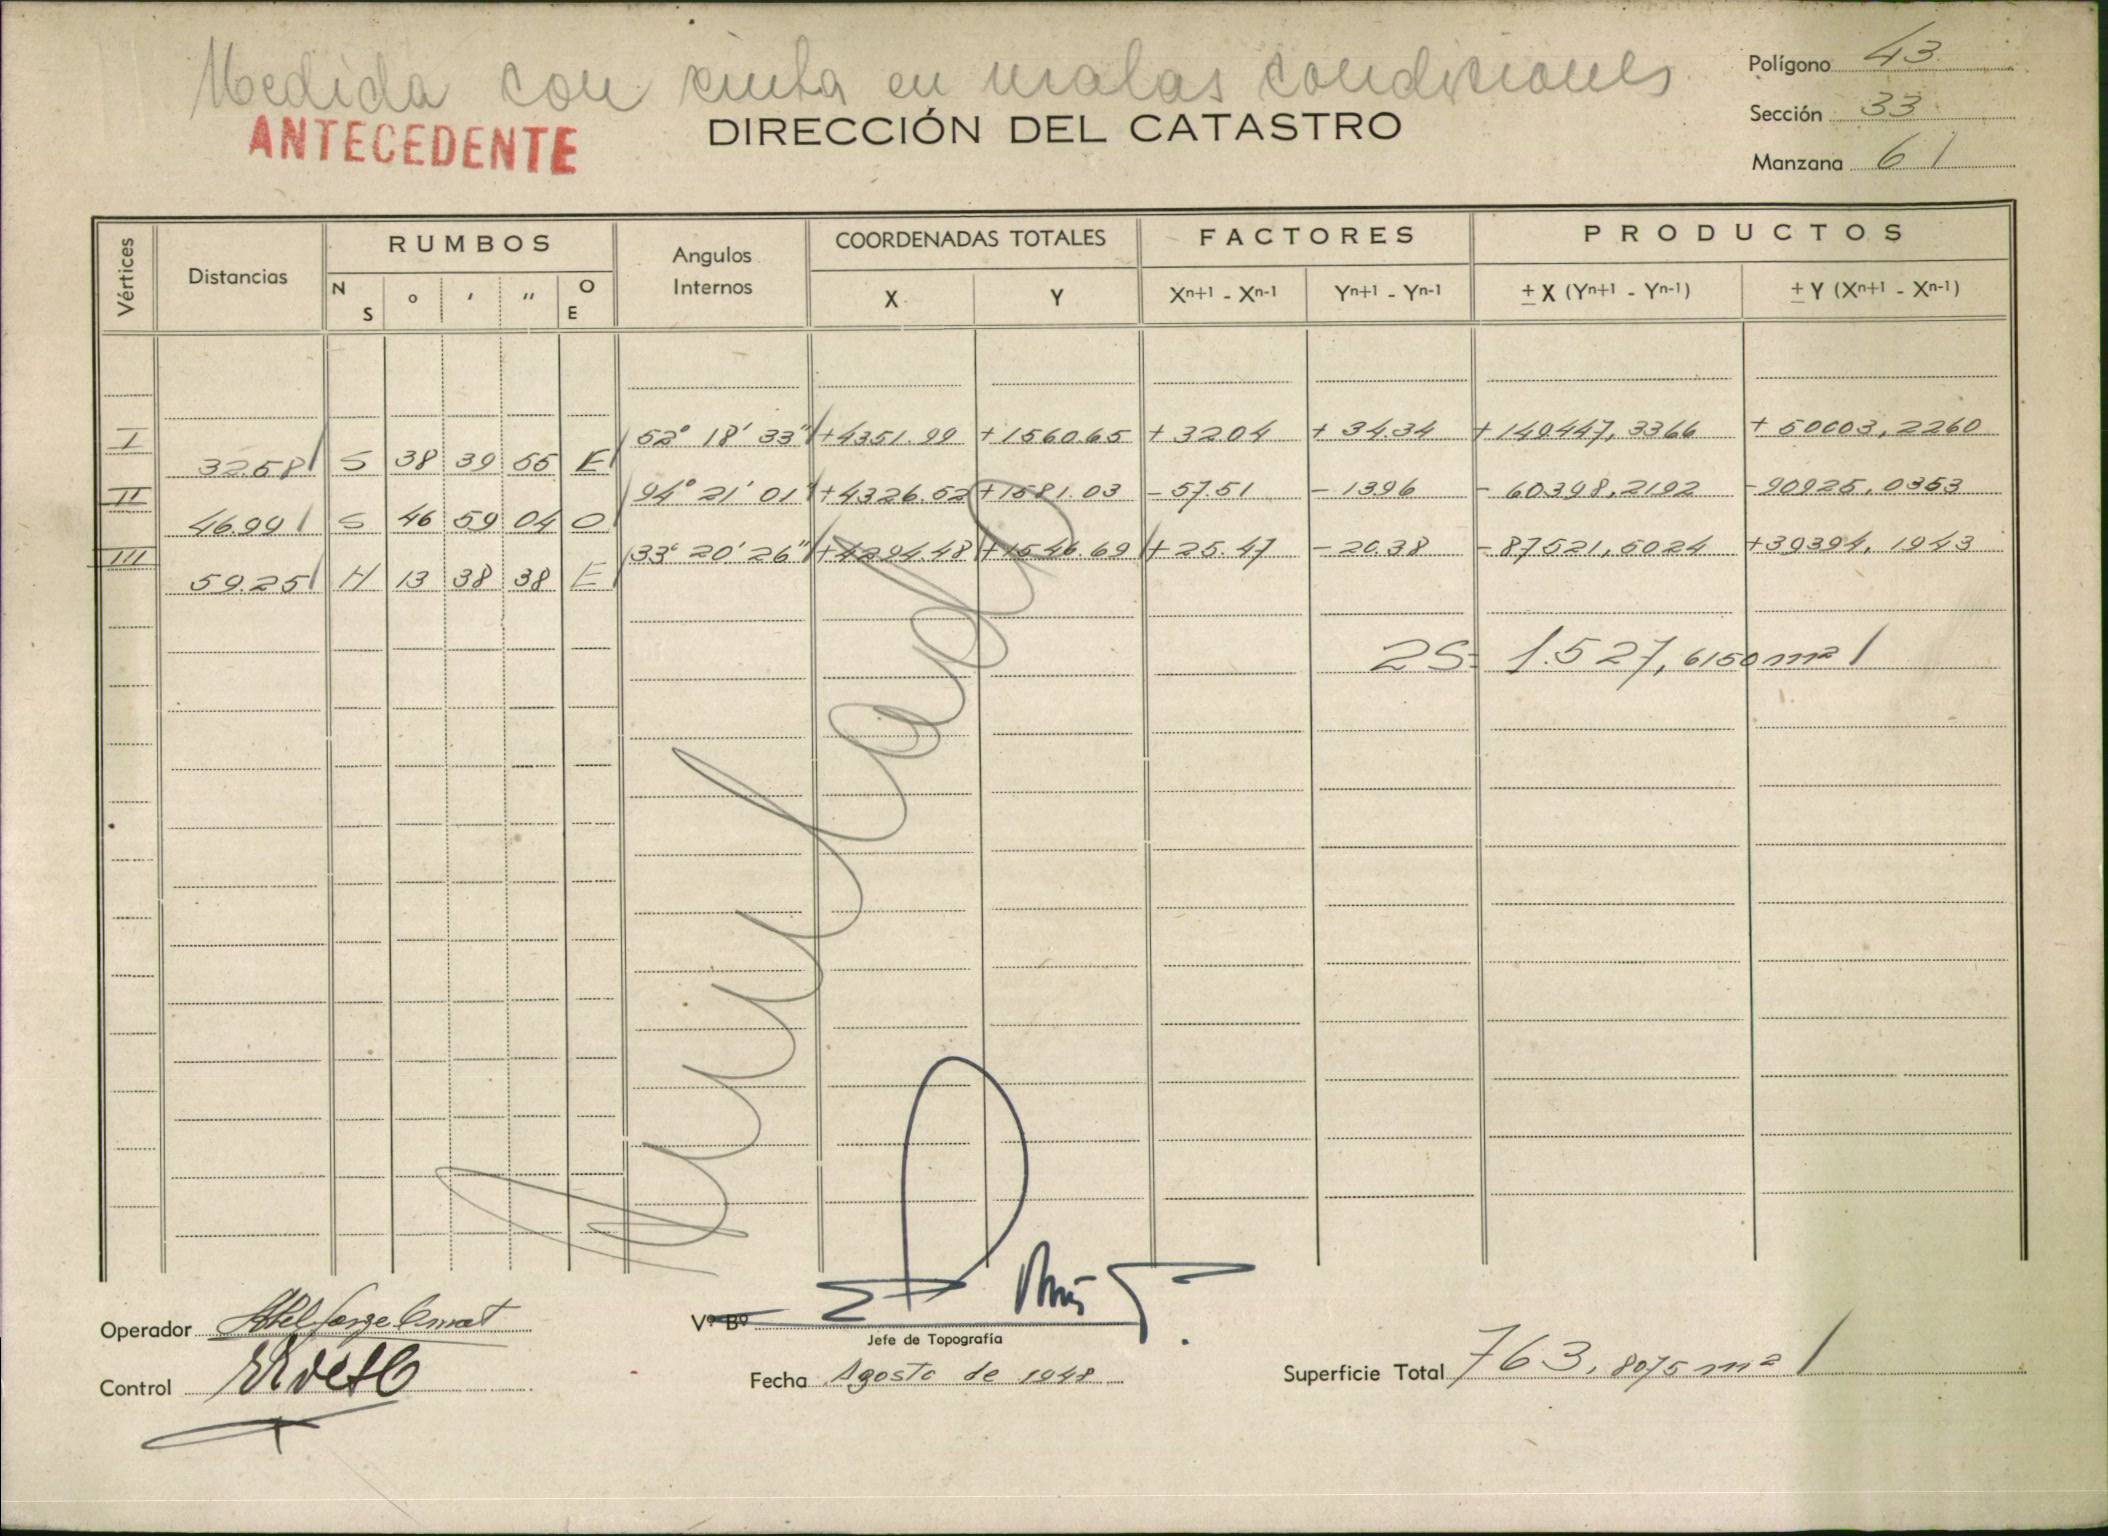 Medida con cinta en malas condiciones
ANTECEDENTE
DIRECCIÓN DEL CATASTRO
Polígono 43
Sección 33
Manzana 61
Vértices Distancias RUMBOS Angulos Internos COORDENADAS TOTALES FACTORES PRODUCTOS
N S ° ' " O E X Y Xⁿ⁺¹ - Xⁿ⁻¹ Yⁿ⁺¹ - Yⁿ⁻¹ ± X (Yⁿ⁺¹ - Yⁿ⁻¹) ± Y (Xⁿ⁺¹ - Xⁿ⁻¹)
I 52° 18' 33" +4351.99 +1560.65 +32.04 +34.34 +149447,3366 +50003,2260
32.58 S 38 39 55 E
II 94° 21' 01" +4326.52 +1581.03 -57.51 -13.96 -60398,2192 -90925,0353
46.99 S 46 59 04 O
III 33° 20' 26" +4294.48 +1546.69 +25.47 -20.38 -87521,5024 +39394,1943
59.25 N 13 38 38 E
2S= 1.527,6150 m²
Anulado
Operador
Control
Vº Bº
Jefe de Topografía
Fecha Agosto de 1948
Superficie Total 763,8075 m²